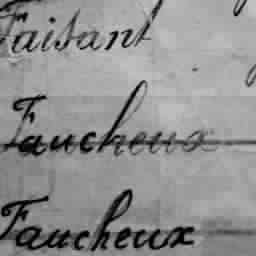 Faisant
Faucheux
Faucheux